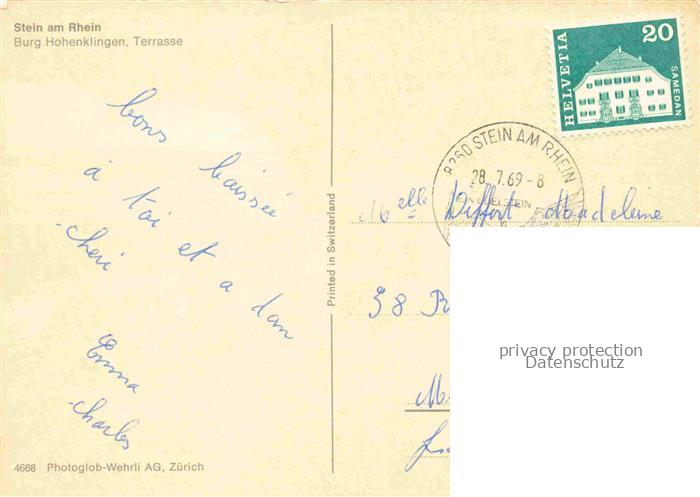 Stein am Rhein
Burg Hohenklingen, Terrasse
bons baissée
à toi et a dan
chéri
Emma
charles
4668 Photoglob-Wehrli AG, Zürich
Printed in Switzerland
HELVETIA
20
SAMEDAN
8260 STEIN AM RHEIN
28.7.69-8
Melle Differt Madeleine
38
privacy protection
Datenschutz